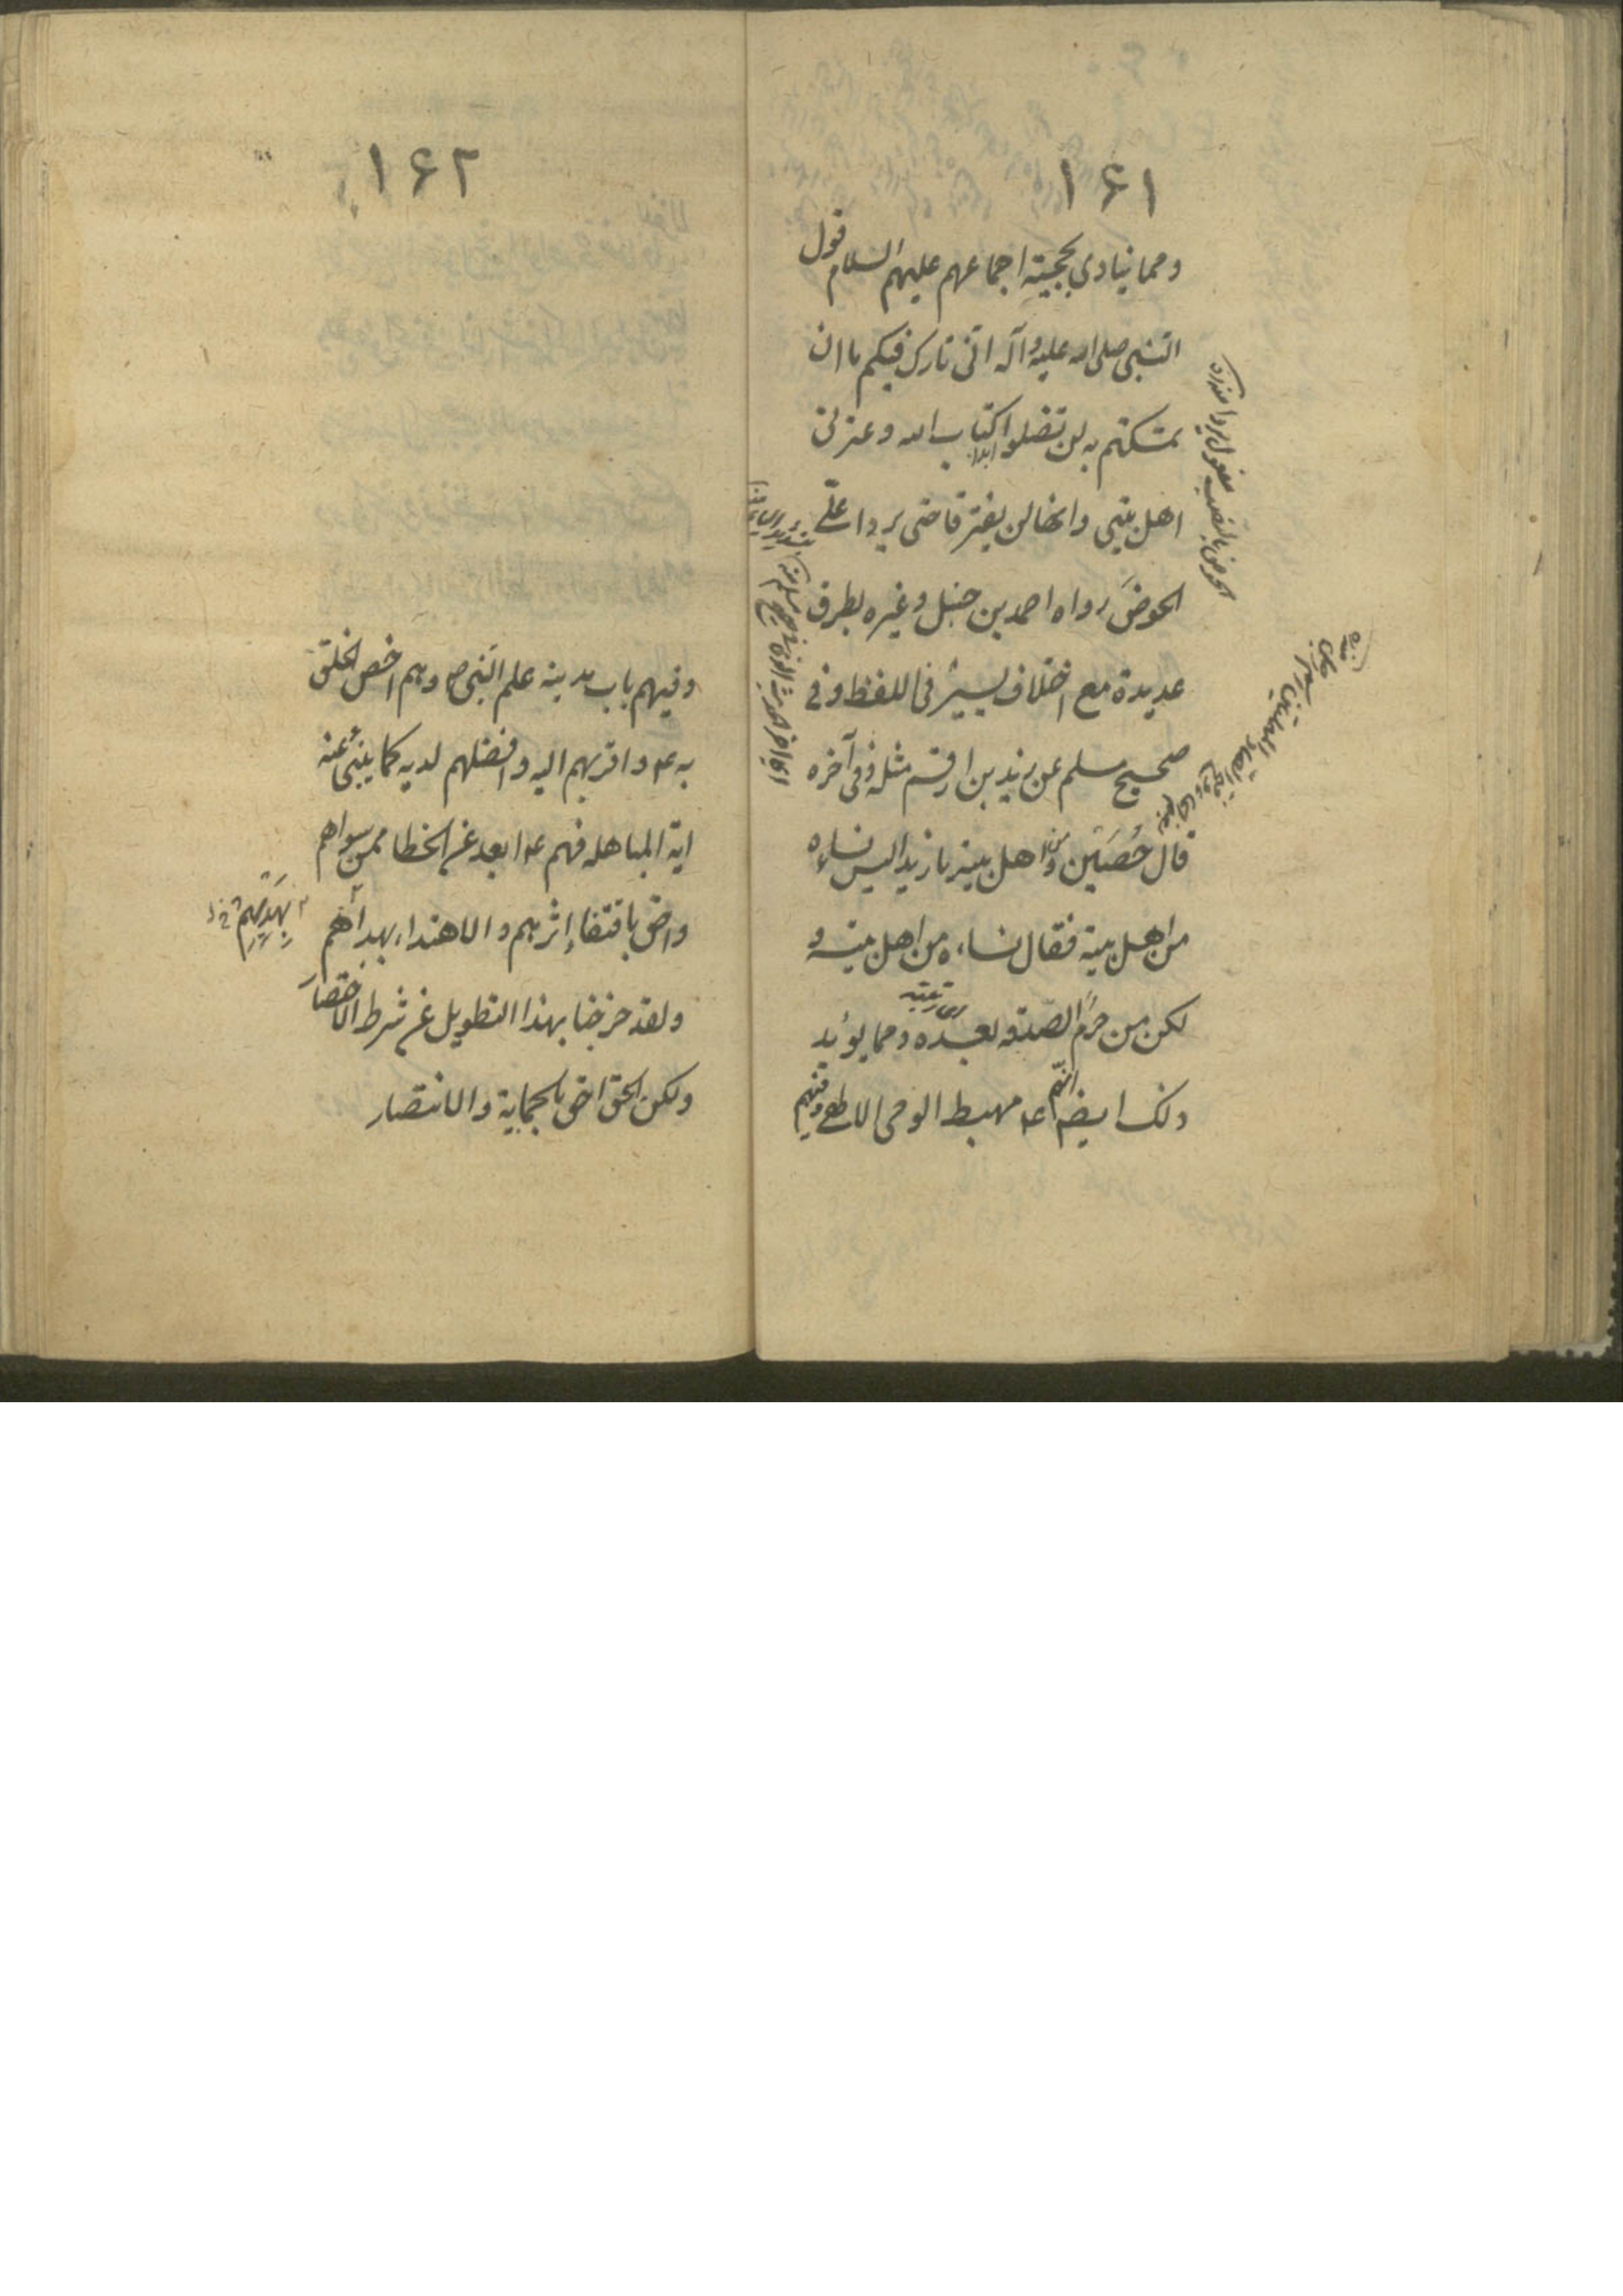 ۱۶۱
ومما ينادي بحجية اجماعهم عليهم السلام قول
النبي صلى الله عليه وآله انى تارك فيكم ما ان
تمسكتم به لن تضلوا ابدا كتاب الله وعترتى
اهل بيتى وانهما لن يفترقا حتى يردا علىّ
الحوضَ رواه احمد بن حنبل وغيره بطرق
عديدة مع اختلاف يسير فى اللفظ وفى
صحيح مسلم عن زيد بن ارقم مثله وفى آخره
قال حُصَين ومن اهل بيته يا زيد اليس نساءه
من اهل بيته فقال نساءه من اهل بيته و
لكن من حُرِّم الصّدقه بعده ومما يؤيد
ذلك ايضا انّهم ع مهبط الوحى الالهى وفيهم
الحوض بالنصب مفعول يردا
۱۶۲
وفيهم باب مدينة علم النبى ص وهم اخص الخلق
به ع واقربهم اليه وافضلهم لديه كما ينبئ عنه
اية المباهله فهم ع ابعد عن الخطا ممن سواهم
واحق باقتفاء إثرهم والاهتداء بهداهم
بهَديهم
ولقد خرجنا بهذا التطويل عن شرط الاختصار
ولكن الحق احق بالحماية والانتصار